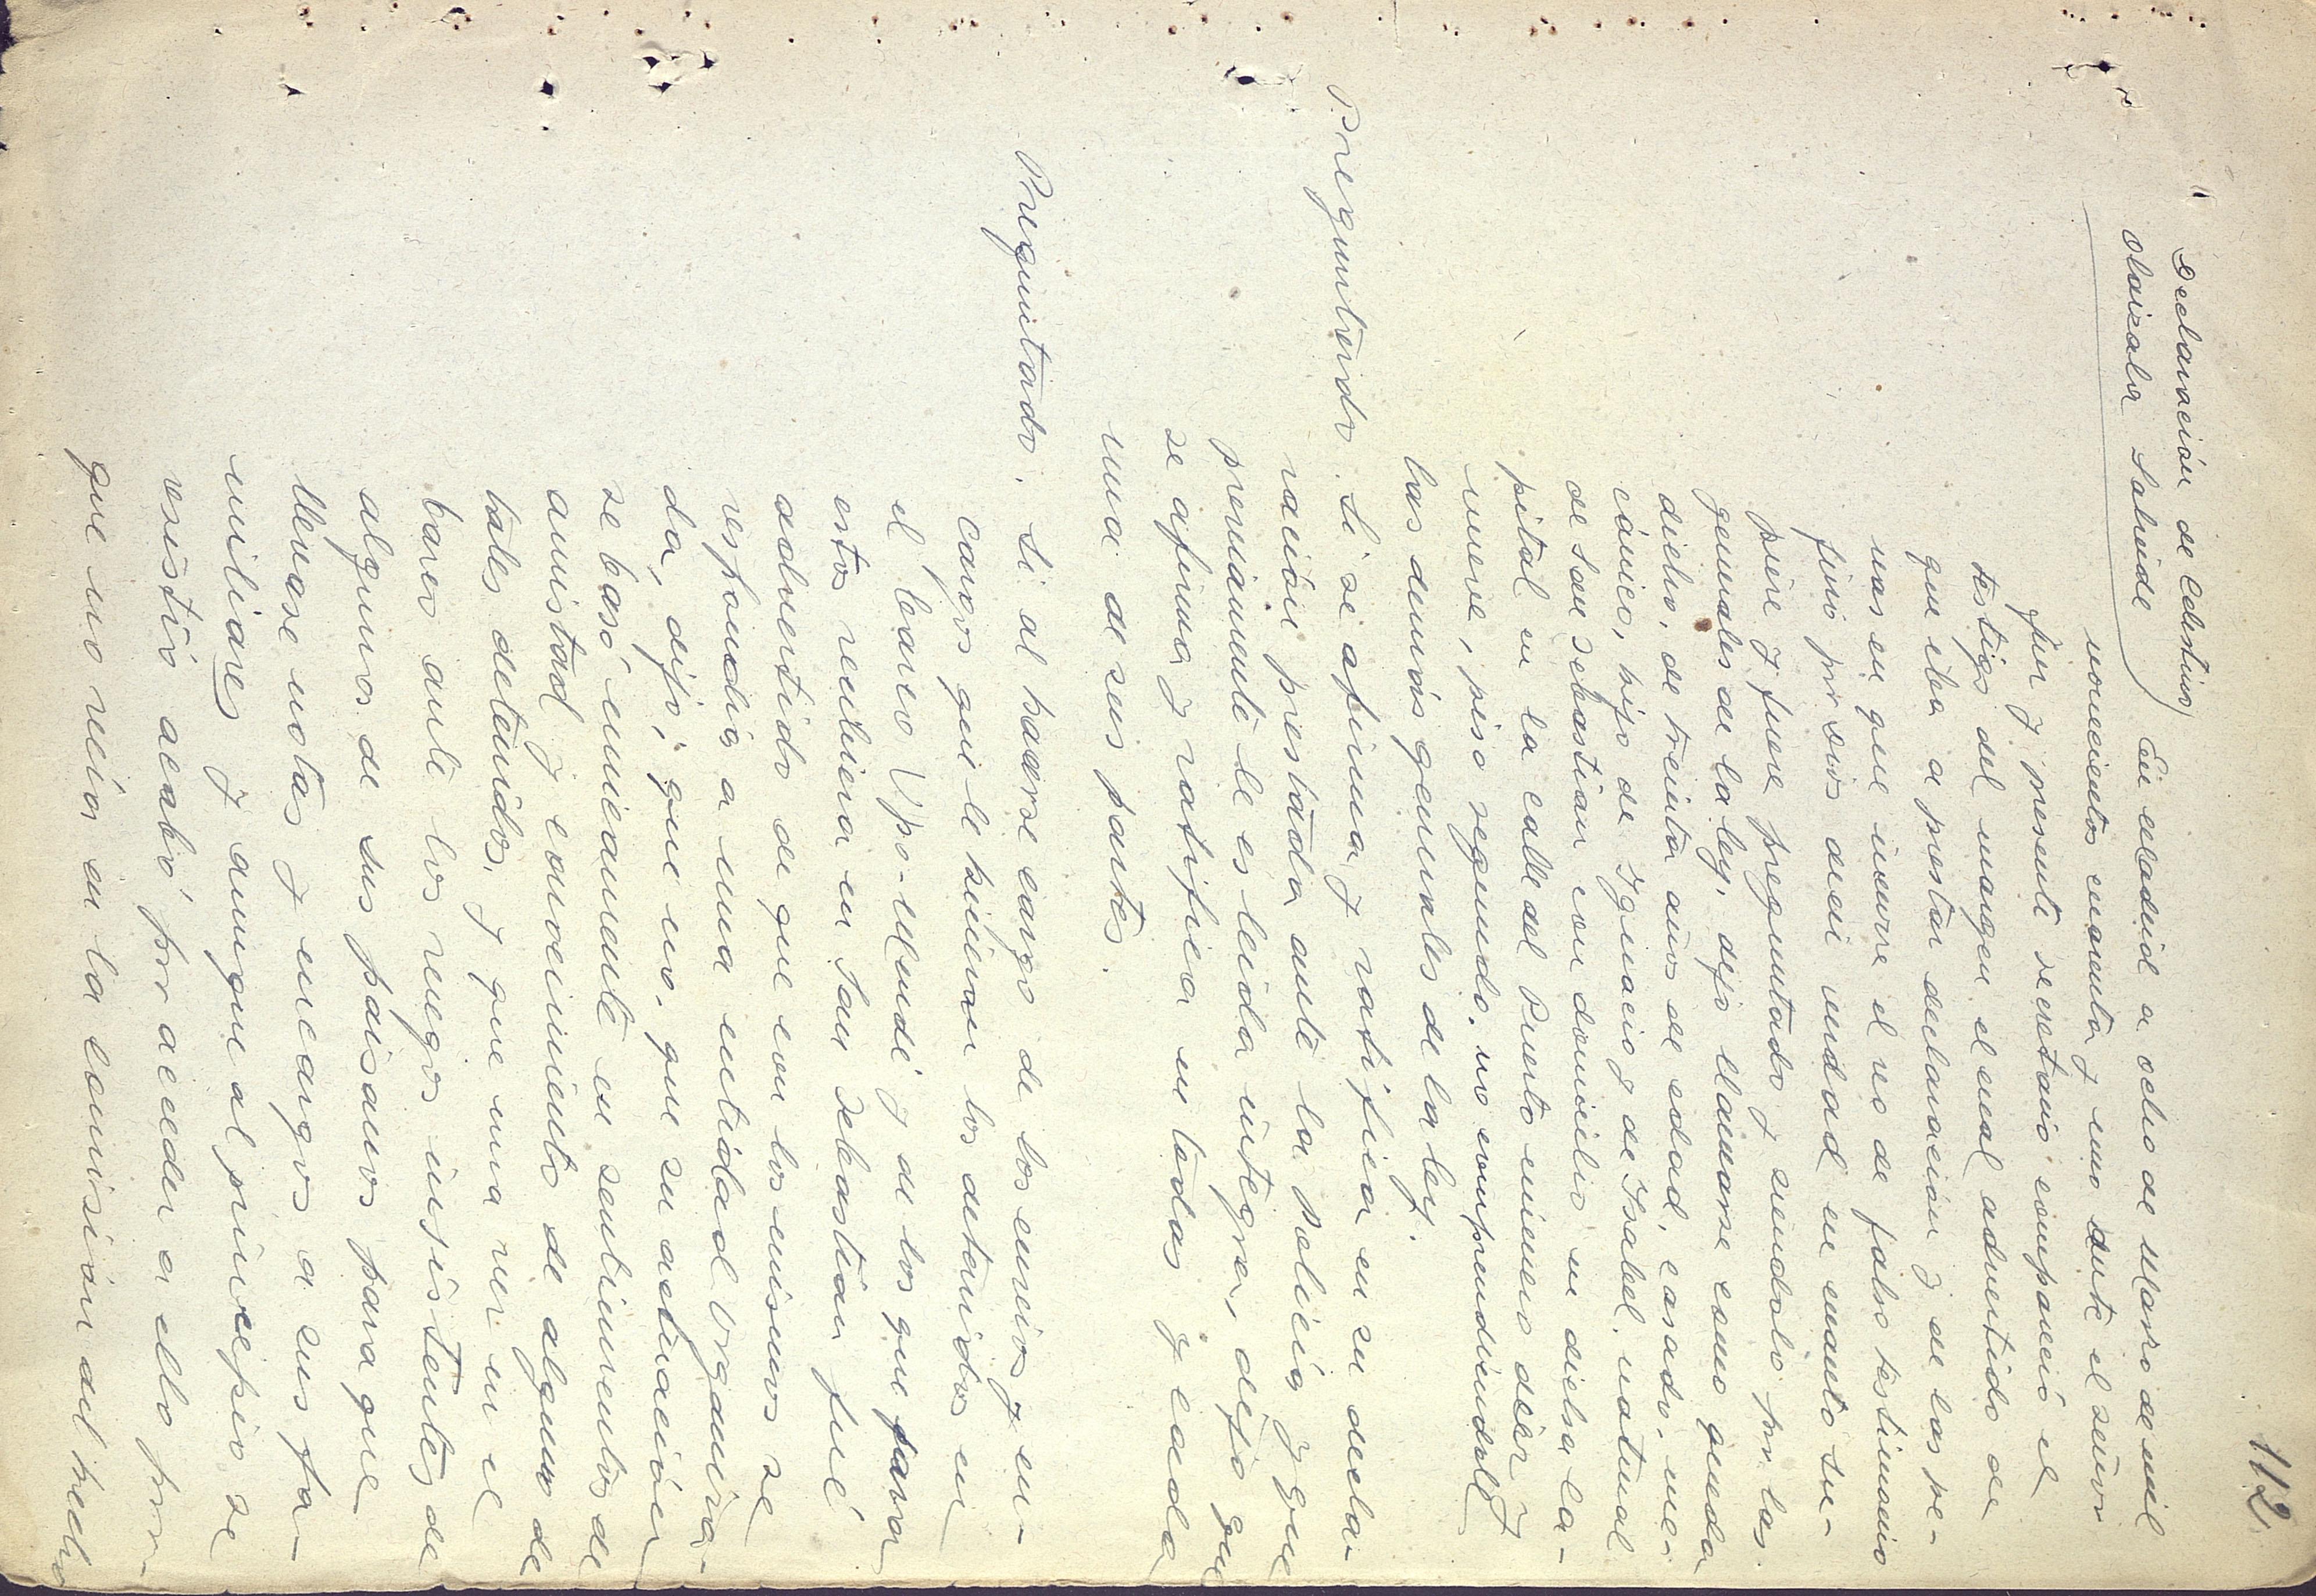 112
Declaración de Celestino
Olaizola Sabúnde
En Madrid a ocho de Marzo de mil
novecientos cuarenta y uno ante el señor
Juez y presente secretario compareció el
testigo del margen el cual advertido de
que iba a prestar declaración y de las pe-
nas en que incurre el reo de falso testimonio
juró por Dios decir verdad en cuanto su-
piere y fuere preguntado y siendolo por las
generales de la ley, dijo llamarse como queda
dicho, de treinta años de edad, casado, me-
cánico, hijo de Ignacio y de Isabel, natural
de San Sebastian con domicilio en dicha ca-
pital en la calle del Puerto número diez y
nueve, piso segundo, no comprendiendole
las demás generales de la ley.
Preguntado. Si se afirma y ratifica en su decla-
ración prestada ante la Policia y que
previamente le es leida integra, dijo que
se afirma y ratifica en todas y cada
una de sus partes.
Preguntado. Si al hacerse cargo de los envios y en-
cargos que le hicieran los detenidos en
el barco Upo-Mendi y de los que para
estos recibiera en San Sebastian fué
advertido de que con los mismos se
respondia a una entidad organiza-
da, dijo; que no, que su actuación
se basó unicamente en sentimientos de
amistad y conocimiento de alguno de
tales detenidos, y que una vez en el
barco ante los ruegos insistentes de
algunos de sus paisanos para que
llevase notas y encargos a sus fa-
miliares y aunque al principio se
resistió acabó por acceder a ello por-
que no veia en la comisión del hecho